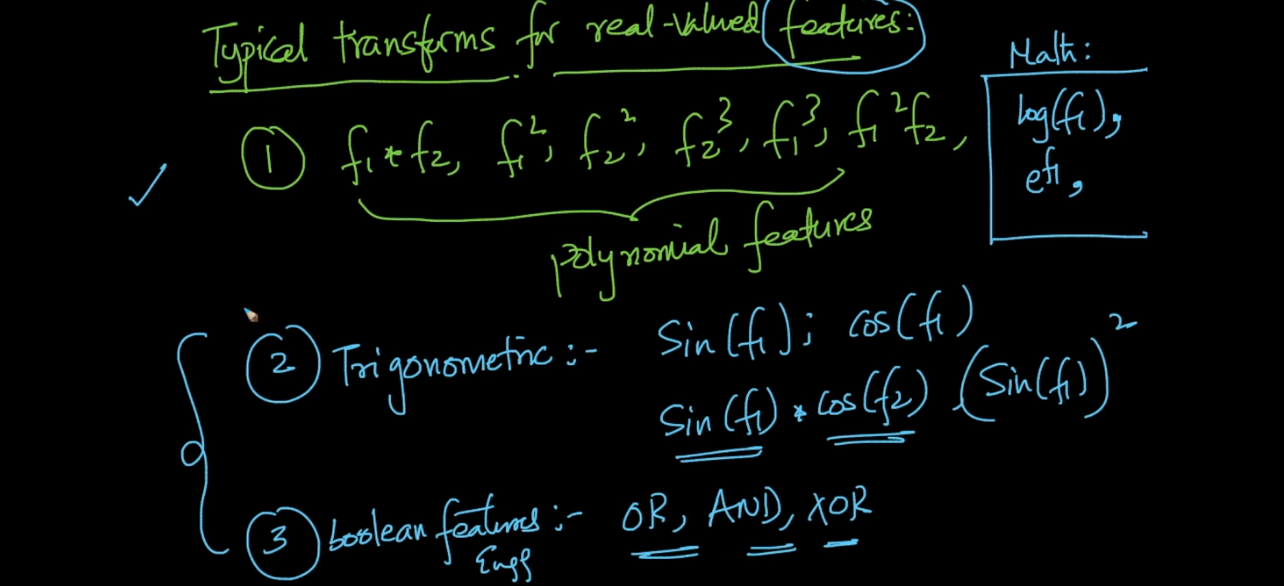 Typical transforms for real-valued features:
Math:
① f₁*f₂, f₁², f₂², f₂³, f₁³, f₁²f₂,
log(f₁),
e^f₁,
polynomial features
② Trigonometric :- Sin(f₁); cos(f₁)
Sin(f₁) * cos(f₂) (Sin(f₁))²
③ boolean features :- OR, AND, XOR
Engg